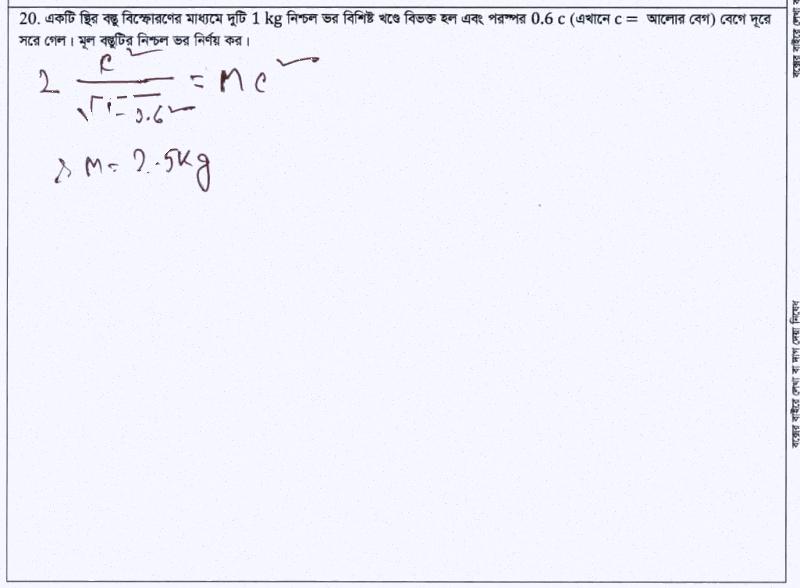 20. একটি স্থির বস্তু বিস্ফোরণের মাধ্যমে দুটি 1 kg নিশ্চল ভর বিশিষ্ট খণ্ডে বিভক্ত হল এবং পরস্পর 0.6 c (এখানে c = আলোর বেগ) বেগে দূরে
সরে গেল। মূল বস্তুটির নিশ্চল ভর নির্ণয় কর।
2 c²/√1-0.6² = Mc²
M = 2.5kg
বক্সের বাইরে লেখা বা দাগ দেয়া নিষেধ